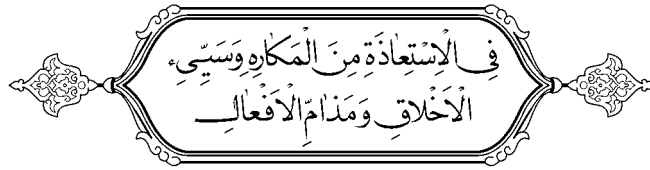 فِي الْاِسْتِعٰاذَةِ مِنَ الْمَكٰارِهِ وَسَيِّئِ
الْاَخْلٰاقِ وَمَذٰامِّ الْاَفْعٰالِ